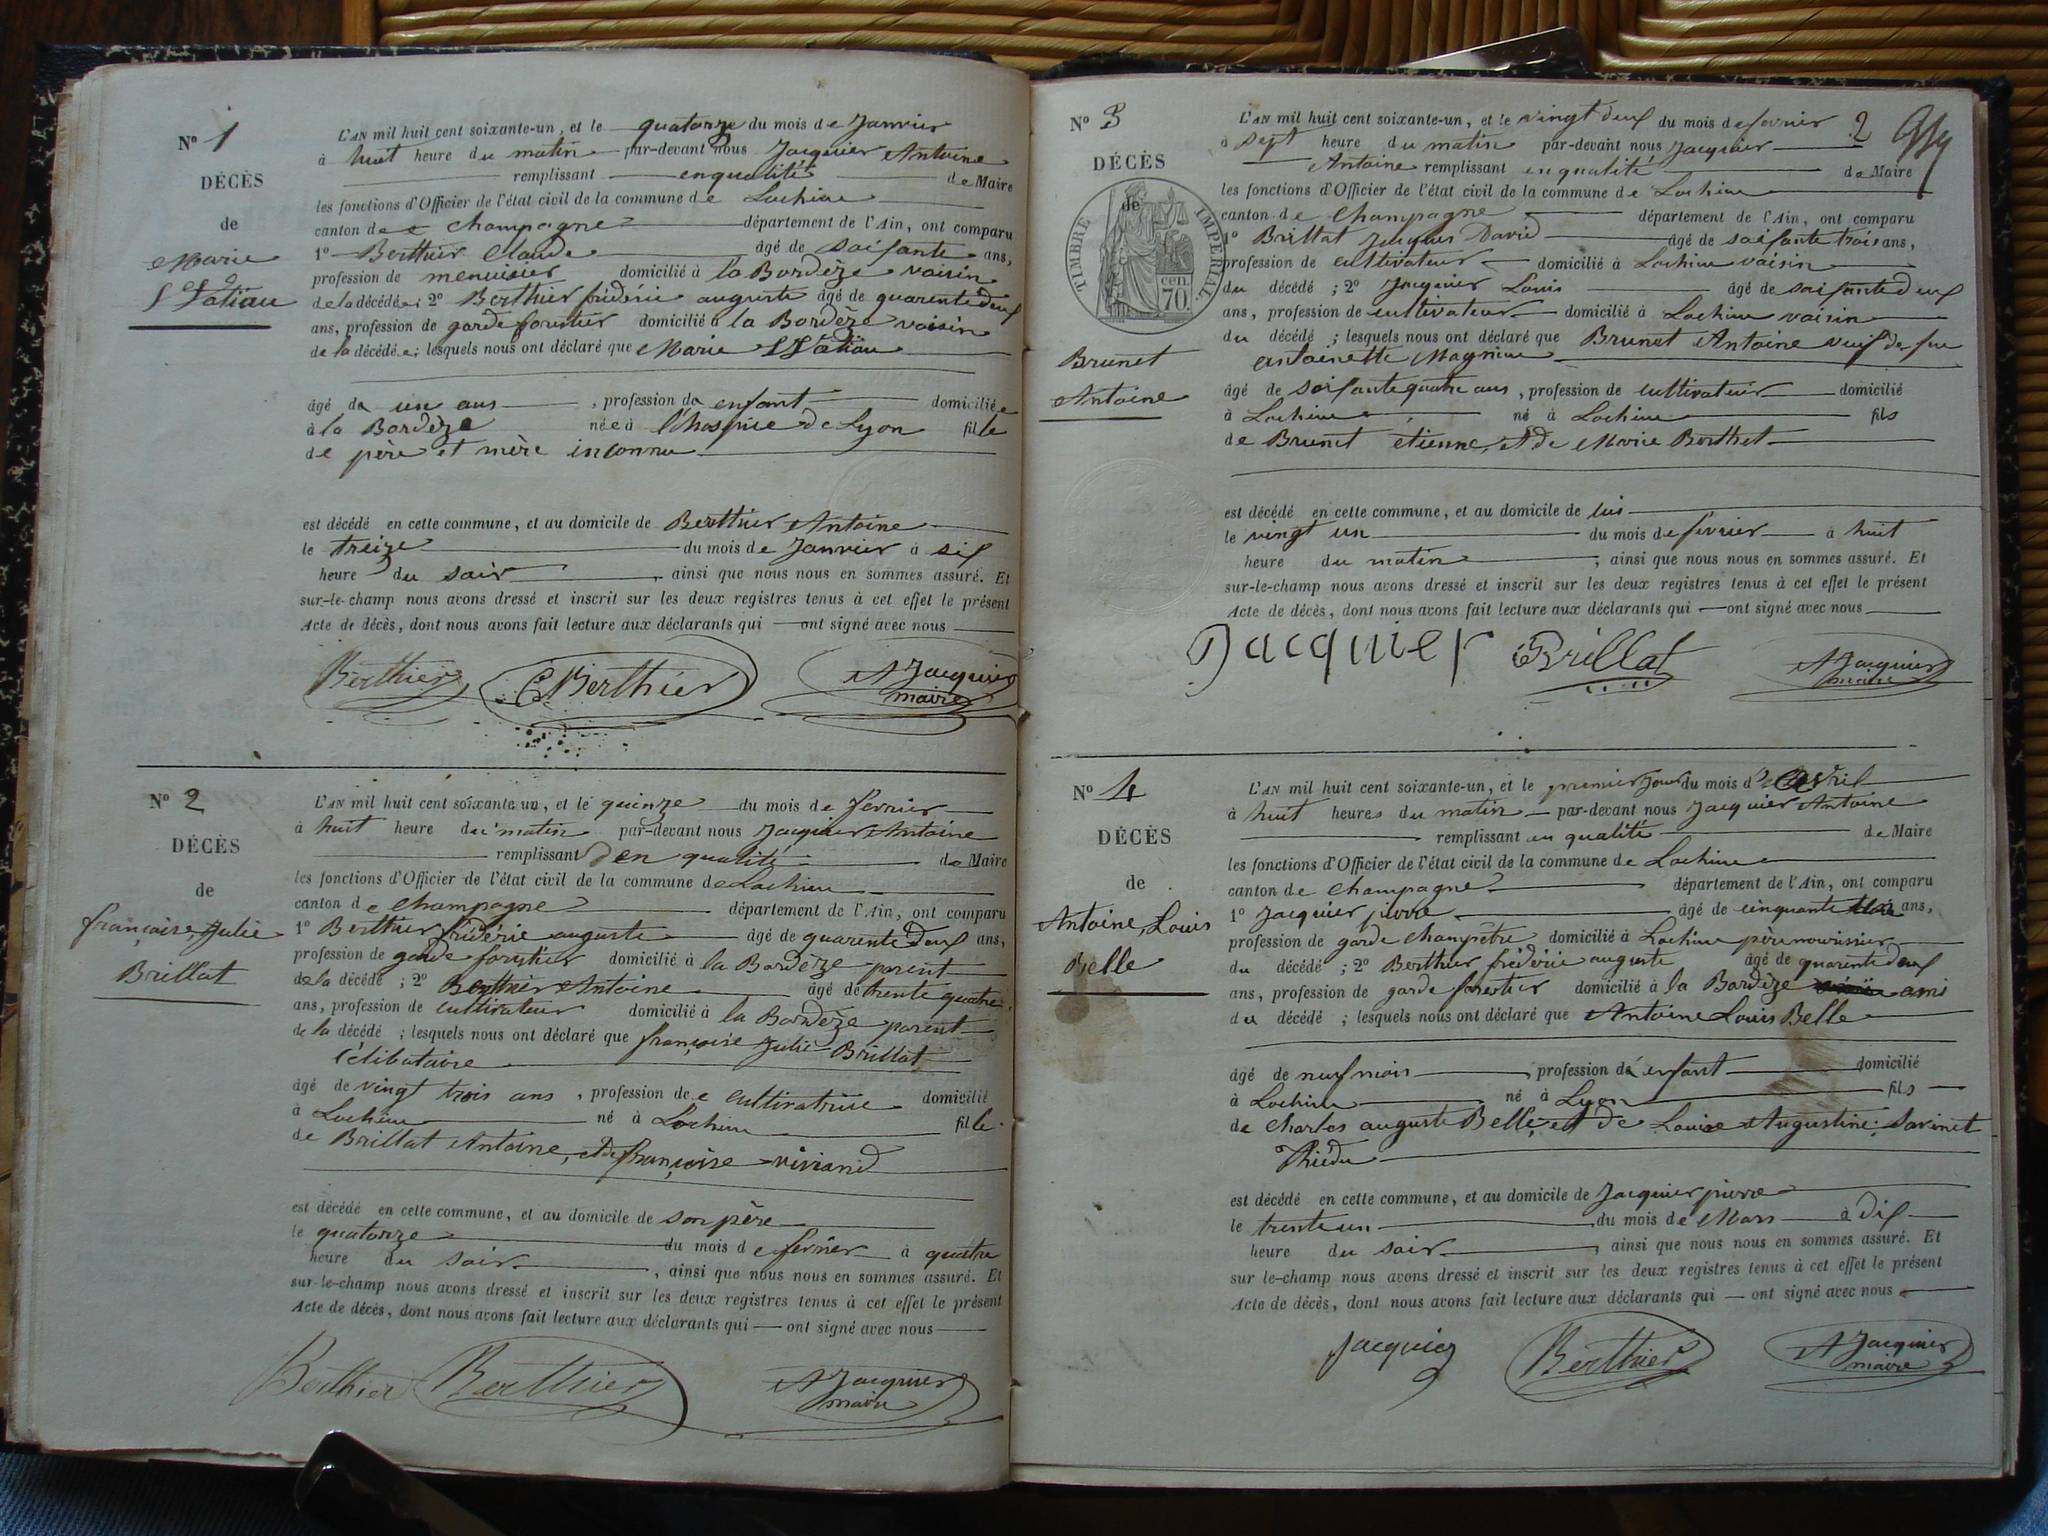 N° 1
DÉCÈS
de
Marie
L'AN mil huit cent soixante-un, et le quatorze du mois de Janvier
à huit heure du matin par-devant nous Jacquier Antoine
remplissant enqualité de Maire
les fonctions d'Officier de l'état civil de la commune de Lochieu
canton de champagne département de l'Ain, ont comparu
1° Berthier Claude âgé de soixante ans,
profession de menuisier domicilié à la Bordèze voisin
de la décédée ; 2° Berthier frédéric auguste âgé de quarente deux
ans, profession de garde forestier domicilié à la Bordèze voisin
de la décédée ; lesquels nous ont déclaré que Marie
âgé de un ans , profession de enfant domiciliée
à la Bordèze née à l'hospice de Lyon fille
de père et mère inconnu
est décédé en cette commune, et au domicile de Berthier Antoine
le treize du mois de Janvier à six
heure du soir , ainsi que nous nous en sommes assuré. Et
sur-le-champ nous avons dressé et inscrit sur les deux registres tenus à cet effet le présent
Acte de décès, dont nous avons fait lecture aux déclarants qui — ont signé avec nous
Berthier C Berthier A Jacquier
maire
N° 2
DÉCÈS
de
françoise, Julie
Brillat
L'AN mil huit cent soixante-un, et le quinze du mois de fevrier
à huit heure du matin par-devant nous Jacquier Antoine
remplissant en qualité de Maire
les fonctions d'Officier de l'état civil de la commune de Lochieu
canton de champagne département de l'Ain, ont comparu
1° Berthier frédéric auguste âgé de quarente deux ans,
profession de garde forestier domicilié à la Bordèze parent
de la décédé ; 2° Berthier Antoine âgé de trente quatre
ans, profession de cultivateur domicilié à la Bordèze parent
de la décédé ; lesquels nous ont déclaré que françoise Julie Brillat
célibataire
âgé de vingt trois ans , profession de cultivatrice domicilié
à Lochieu né à Lochieu fille
de Brillat Antoine, et de françoise viviand
est décédé en cette commune, et au domicile de son père
le quatorze du mois de fevrier à quatre
heure du soir , ainsi que nous nous en sommes assuré. Et
sur-le-champ nous avons dressé et inscrit sur les deux registres tenus à cet effet le présent
Acte de décès, dont nous avons fait lecture aux déclarants qui — ont signé avec nous
Berthier Berthier A Jacquier
maire
2
N° 3
DÉCÈS
de
TIMBRE IMPÉRIAL
70 cen.
Brunet
Antoine
L'AN mil huit cent soixante-un, et le vingt deux du mois de fevrier
à sept heure du matin par-devant nous Jacquier
Antoine remplissant en qualité de Maire
les fonctions d'Officier de l'état civil de la commune de Lochieu
canton de champagne département de l'Ain, ont comparu
1° Brillat Jacques David âgé de soixante trois ans,
profession de cultivateur domicilié à Lochieu voisin
du décédé ; 2° Jacquier Louis âgé de soixante deux
ans, profession de cultivateur domicilié à Lochieu voisin
du décédé ; lesquels nous ont déclaré que Brunet Antoine veuf de feue
antoinette Magnin
âgé de soixante quatre ans , profession de cultivateur domicilié
à Lochieu né à Lochieu fils
de Brunet étienne, et de Marie Berthet
est décédé en cette commune, et au domicile de lui
le vingt un du mois de fevrier à huit
heure du matin ; ainsi que nous nous en sommes assuré. Et
sur-le-champ nous avons dressé et inscrit sur les deux registres tenus à cet effet le présent
Acte de décès, dont nous avons fait lecture aux déclarants qui — ont signé avec nous
Jacquier Brillat A Jacquier
maire
N° 4
DÉCÈS
de
Antoine, Louis
Belle
L'AN mil huit cent soixante-un, et le premier jour du mois d'avril
à huit heures du matin par-devant nous Jacquier Antoine
remplissant en qualité de Maire
les fonctions d'Officier de l'état civil de la commune de Lochieu
canton de champagne département de l'Ain, ont comparu
1° Jacquier pierre âgé de cinquante ans,
profession de garde champêtre domicilié à Lochieu père nourissier
du décédé ; 2° Berthier frédéric auguste âgé de quarente deux
ans, profession de garde forestier domicilié à la Bordèze ami
du décédé ; lesquels nous ont déclaré que Antoine Louis Belle
âgé de neuf mois , profession de enfant domicilié
à Lochieu né à Lyon fils
de Charles auguste Belle, et de Louise Augustine Savinet
est décédé en cette commune, et au domicile de Jacquier pierre
le trente un du mois de Mars à dix
heure du soir , ainsi que nous nous en sommes assuré. Et
sur-le-champ nous avons dressé et inscrit sur les deux registres tenus à cet effet le présent
Acte de décès, dont nous avons fait lecture aux déclarants qui — ont signé avec nous
Jacquier Berthier A Jacquier
maire